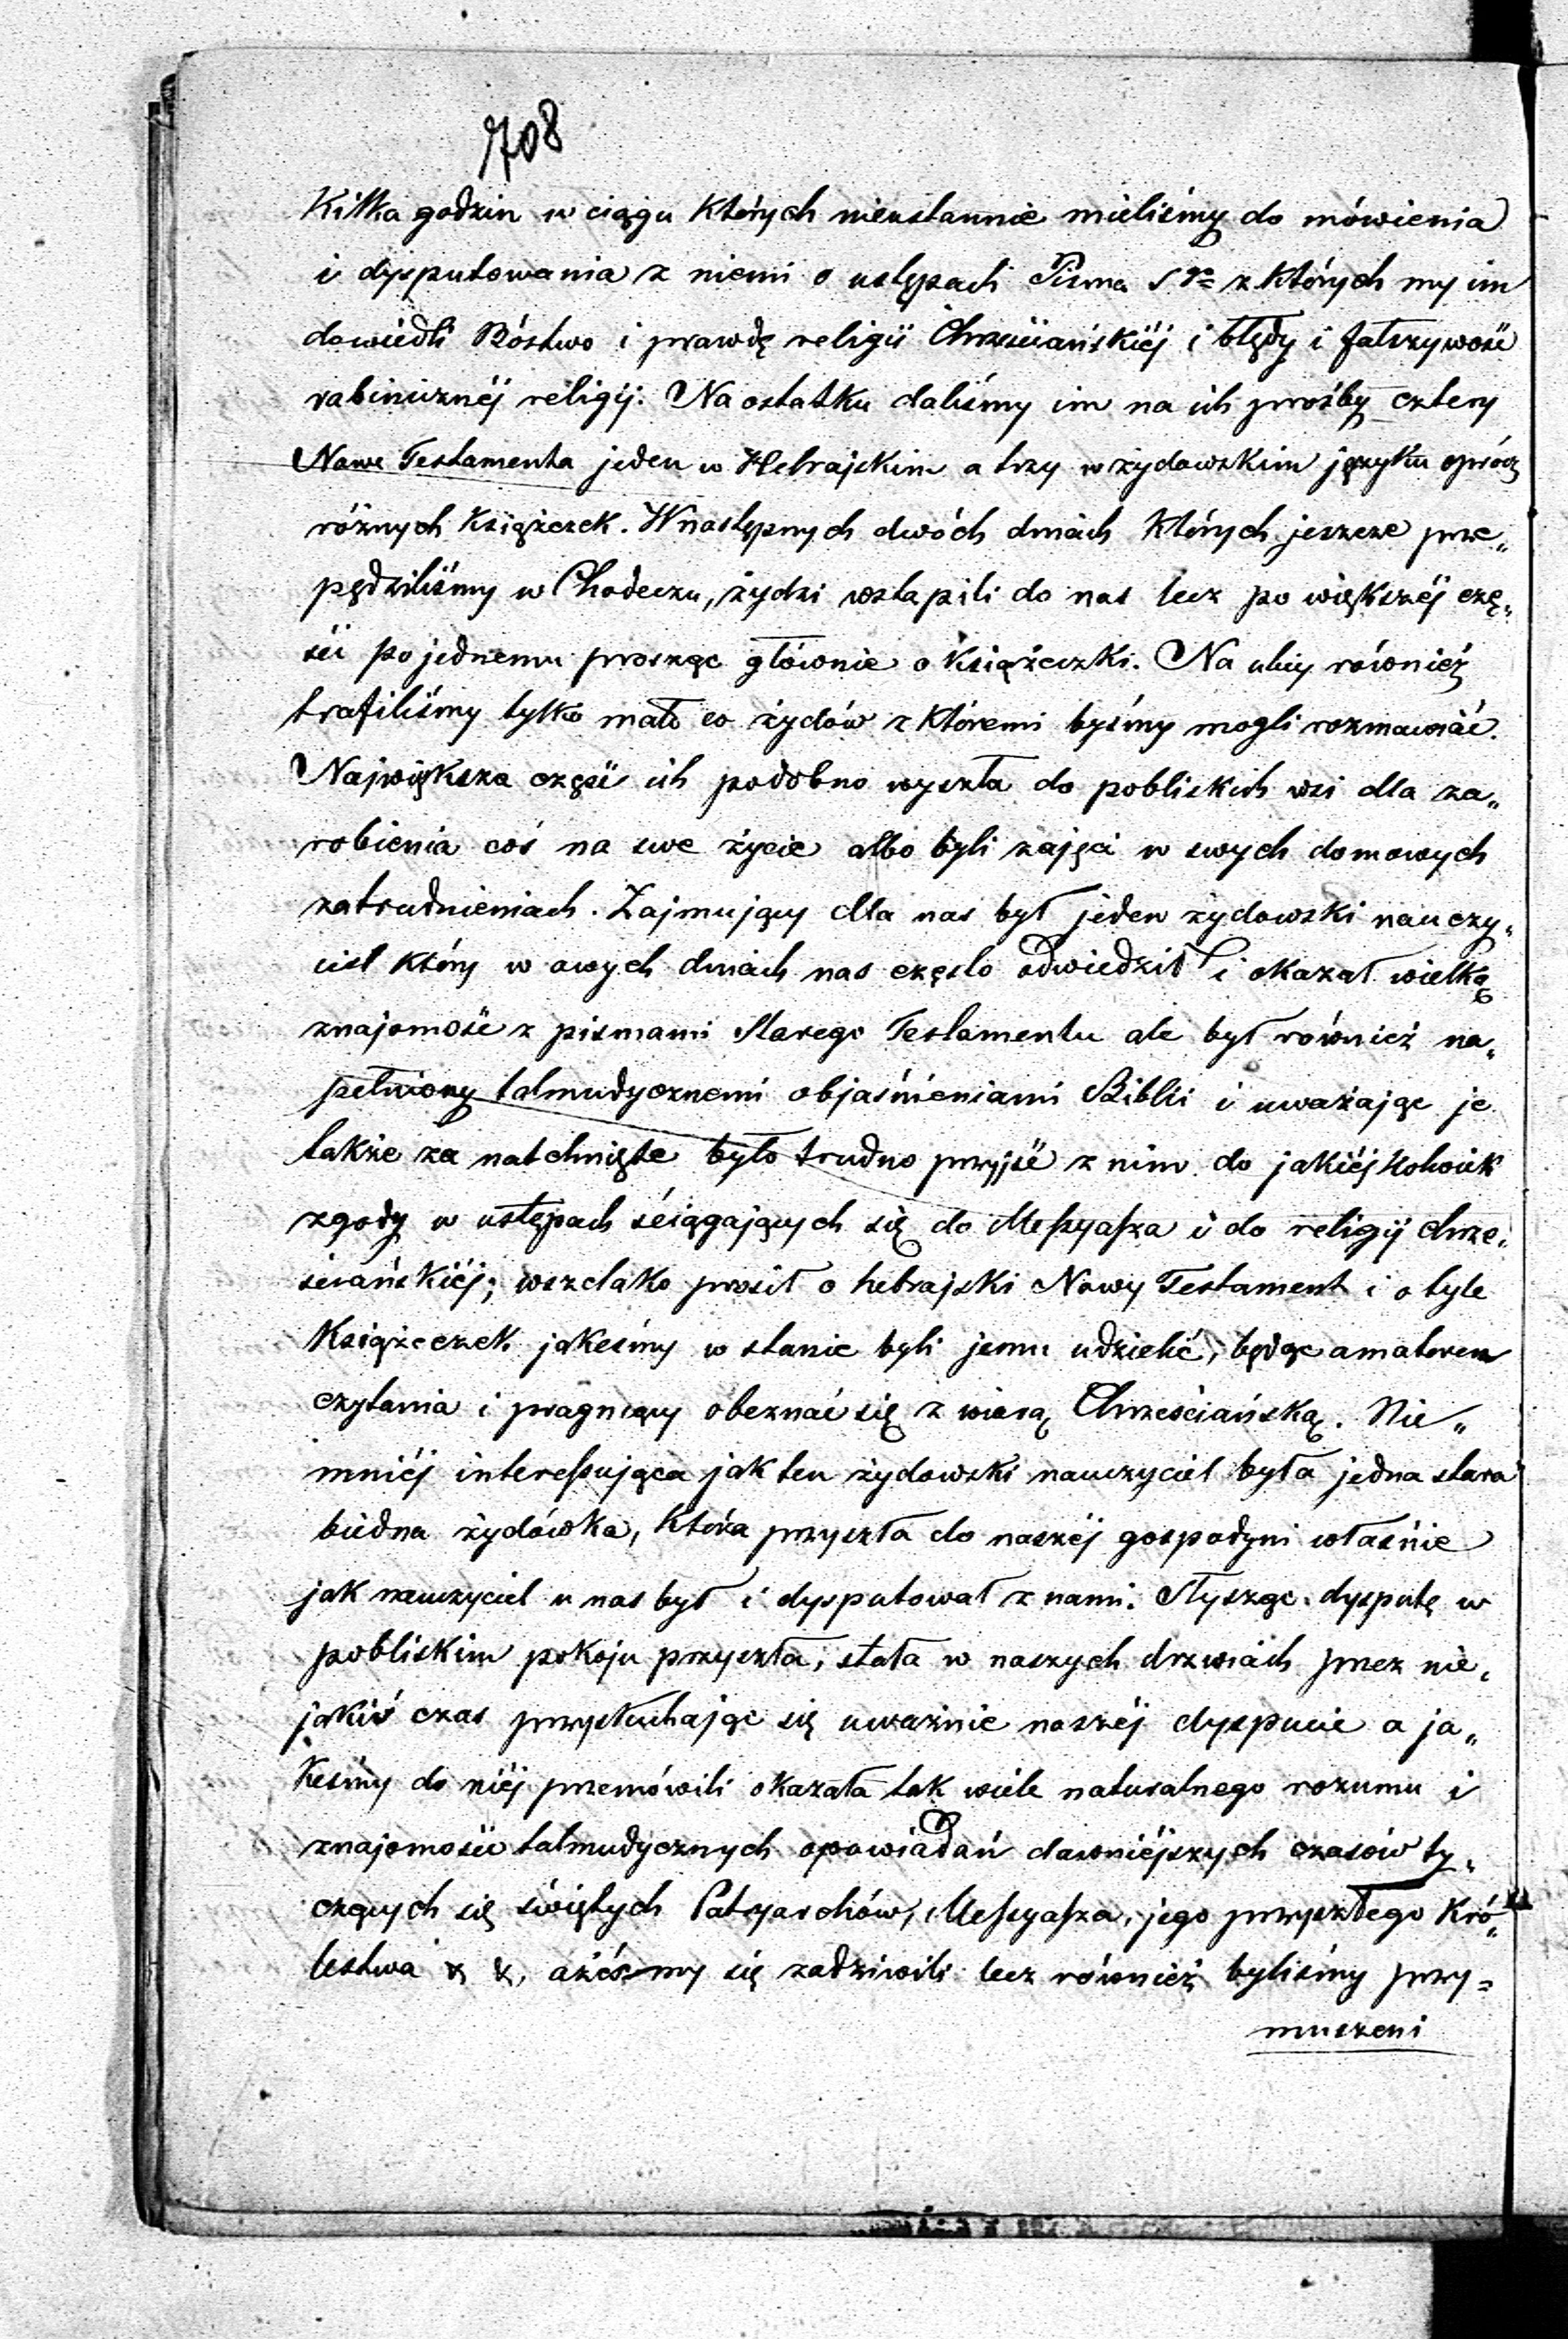 708
Kilka godzin w ciągu których nieustannie mieliśmy do mówienia
i dysputowania z niemi o ustępach Pisma Sgo z których my im
dowiedli Bóstwo i prawdę religii Chrześciańskiéj i błędy i fałszywość
rabinicznéj religij. Na ostatku daliśmy im na ich prośby cztery
Nowe Testamenta jeden w Hebrajskim a trzy w żydowskim języku oprócz
różnych książeczek. W następnych dwóch dniach których jeszcze prze„
pędziliśmy w Chodeczu, żydzi wstąpili do nas lecz po większéj czę„
ści po jednemu prosząc głównie o książeczki. Na ulicy również
trafiliśmy tylko mało co żydów z któremi byśmy mogli rozmawiać.
Największa część ich podobno wyszła do pobliskich wsi dla za„
robienia coś na swe życie albo byli zajęci w swych domowych
zatrudnieniach. Zajmujący dla nas był jeden żydowski nauczy„
ciel który w owych dniach nas często odwiedził i okazał wielką
znajomość z pismami Starego Testamentu ale był również na„
pełniony talmudycznemi objaśnieniami Biblii i uważając je
także za natchnięte było trudno przyjść z nim do jakiéjkolwiek
zgody w ustępach ściągających się do Messyasza i do religij chrze„
ściańskiéj; wszelako prosił o hebrajski Nowy Testament i o tyle
książeczek jakeśmy w stanie byli jemu udzielić, będąc amatorem
czytania i pragnący obeznać się z wiarą Chrześciańską. Nie„
mniéj interessująca jak ten żydowski nauczyciel była jedna stara
biedna żydówka, która przyszła do naszéj gospodyni właśnie
jak nauczyciel u nas był i dysputował z nami. Słysząc dysputę w
pobliskim pokoju przyszła, stała w naszych drzwiach przez nie„
jakiś czas przysłuchając się uważnie naszéj dyspucie a ja„
keśmy do niéj przemówili okazała tak wiele naturalnego rozumu i
znajomości talmudycznych opowiadań dawniéjszych czasów ty„
czących się świętych Patryarchów, Messyasza, jego przyszłego Kró„
lestwa & &, ażeśmy się zadziwili lecz również byliśmy przy=
muszeni